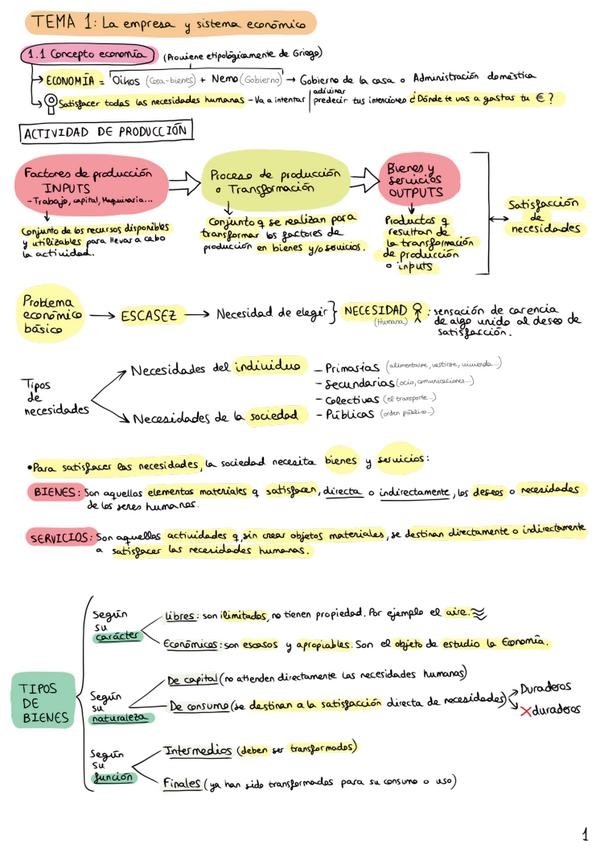 TEMA 1: La empresa y sistema económico
1.1 Concepto economía (Proviene etipológicamente de Griego)
ECONOMÍA = Oikos (Casa-bienes) + Nemo (Gobierno) → Gobierno de la casa o Administración doméstica
Satisfacer todas las necesidades humanas - Va a intentar adivinar
predecir tus intenciones ¿Dónde te vas a gastar tu €?
ACTIVIDAD DE PRODUCCIÓN
Factores de producción
INPUTS
- Trabajo, capital, Maquinaria...
Proceso de producción
o Transformación
Bienes y
servicios
OUTPUTS
Conjunto de los recursos disponibles
y utilizables para llevar a cabo
la actividad.
Conjunto q se realizan para
transformar los factores de
producción en bienes y/o servicios.
Productos q
resultan de
la transformación
de producción
o inputs
Satisfacción
de
necesidades
Problema
económico
básico
→ ESCASEZ → Necesidad de elegir} NECESIDAD
(Humana)
: sensación de carencia
de algo unido al deseo de
satisfacción.
Tipos
de
necesidades
Necesidades del individuo
Necesidades de la sociedad
- Primarias (alimentarse, vestirse, vivienda...)
- Secundarias (ocio, comunicaciones...)
- Colectivas (el transporte...)
- Públicas (orden público...)
•Para satisfacer las necesidades, la sociedad necesita bienes y servicios:
BIENES: Son aquellos elementos materiales q satisfacen, directa o indirectamente, los deseos o necesidades
de los seres humanos.
SERVICIOS: Son aquellos actividades q, sin crear objetos materiales, se destinan directamente o indirectamente
a satisfacer las necesidades humanas.
TIPOS
DE
BIENES
Según
su
carácter
Libres: son ilimitados, no tienen propiedad. Por ejemplo el aire.
Económicos: son escasos y apropiables. Son el objeto de estudio la Economía.
Según
su
naturaleza
De capital (no atienden directamente las necesidades humanas)
De consumo (se destinan a la satisfacción directa de necesidades)
Duraderos
X duraderos
Según
su
función
Intermedios (deben ser transformados)
Finales (ya han sido transformados para su consumo o uso)
1